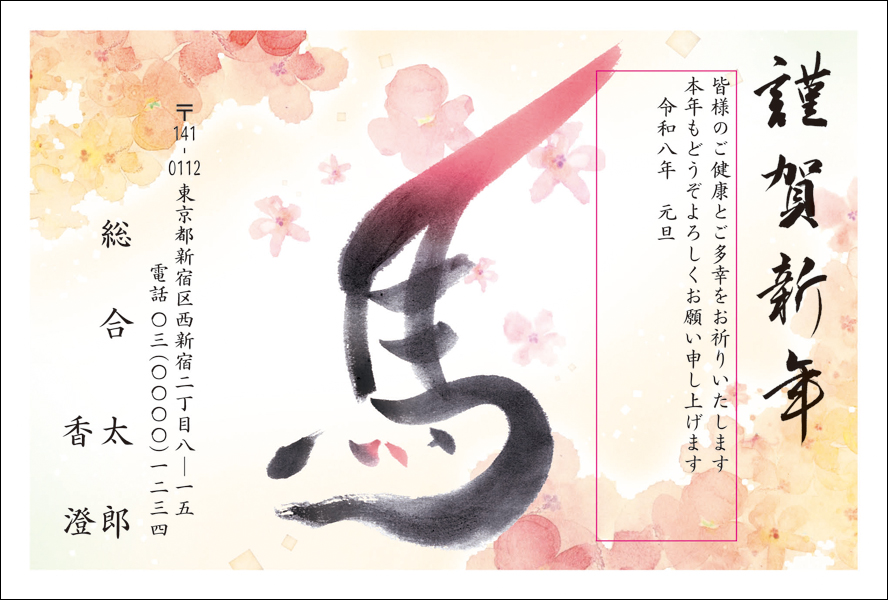 謹賀新年
皆様のご健康とご多幸をお祈りいたします
本年もどうぞよろしくお願い申し上げます
令和八年　元旦
馬
〒141-0112 東京都新宿区西新宿二丁目八―一五
電話 〇三(〇〇〇〇)一二三四
総合　太郎
香澄